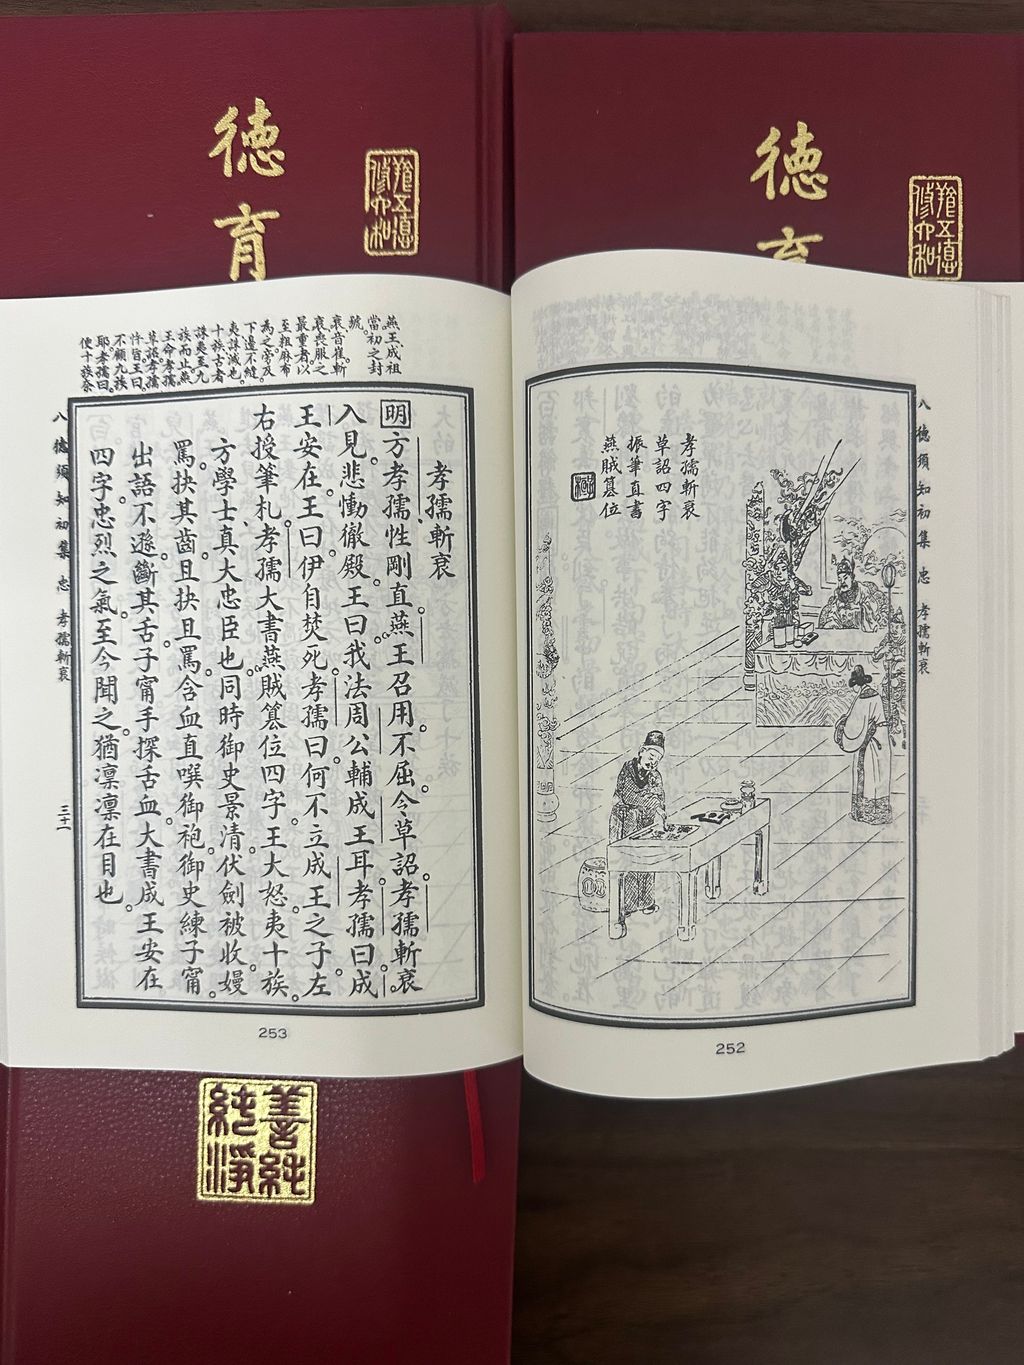 德育
修六和
德育
修六和
八德須知初集 忠 孝孺斬衰
孝孺斬衰
草詔四字
振筆直書
燕賊篡位
252
燕王成祖
當初之封
號。
衰音崔。斬
衰喪服之
最重者。以
至粗麻布
為之。旁及
下邊不縫
夷誅滅也。
十族古者
誅夷至九
族而止。燕
王命孝孺
草詔。孝孺
忤旨。王曰。
不顧九族
耶。孝孺曰。
便十族奈
孝孺斬衰
明 方孝孺性剛直。燕王召用。不屈。令草詔。孝孺斬衰。
入見。悲慟徹殿。王曰我法周公輔成王耳。孝孺曰。成
王安在。王曰。伊自焚死。孝孺曰。何不立成王之子。左
右授筆札。孝孺大書燕賊篡位四字。王大怒。夷十族。
方學士真大忠臣也。同時御史景清。伏劍被收。嫚
罵。抉其齒。且抉且罵。含血直噀御袍。御史練子甯。
出語不遜。斷其舌。子甯手探舌血。大書成王安在
四字。忠烈之氣。至今聞之。猶凜凜在目也。
八德須知初集 忠 孝孺斬衰
三十一
253
純淨純善